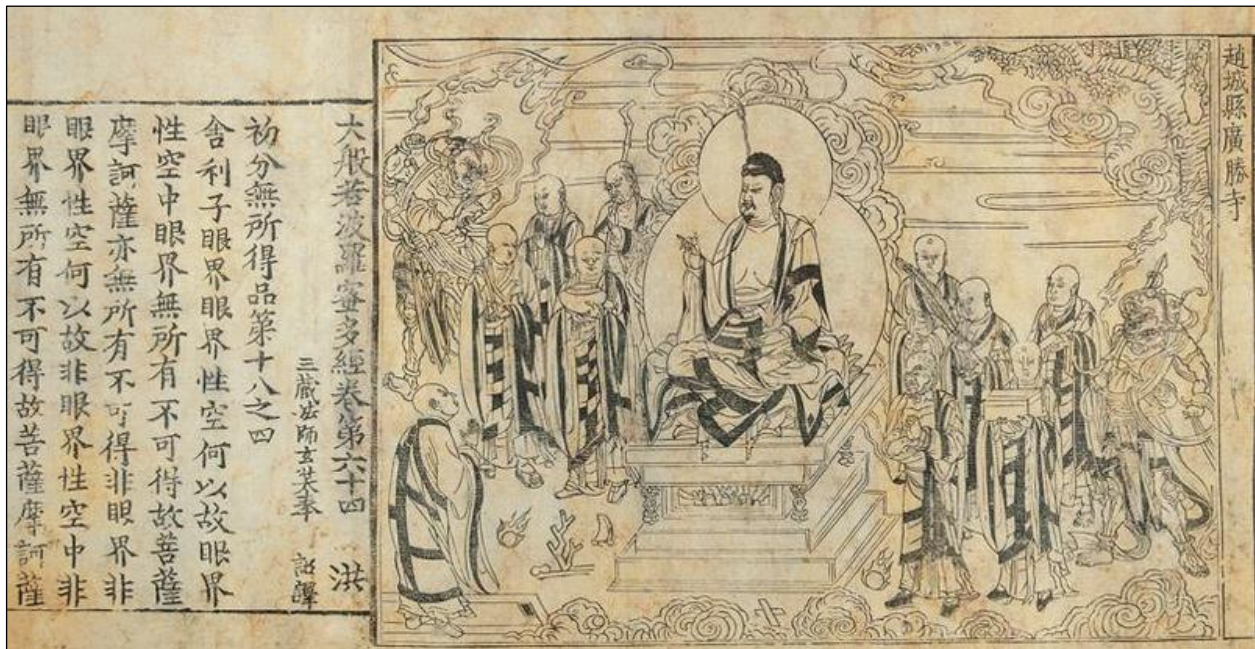 趙城縣廣勝寺
大般若波羅蜜多經卷第六十四 洪
三藏法師玄奘奉 詔譯
初分無所得品第十八之四
舍利子眼界眼界性空何以故眼界
性空中眼界無所有不可得故菩薩
摩訶薩亦無所有不可得非眼界非
眼界性空何以故非眼界性空中非
眼界無所有不可得故菩薩摩訶薩